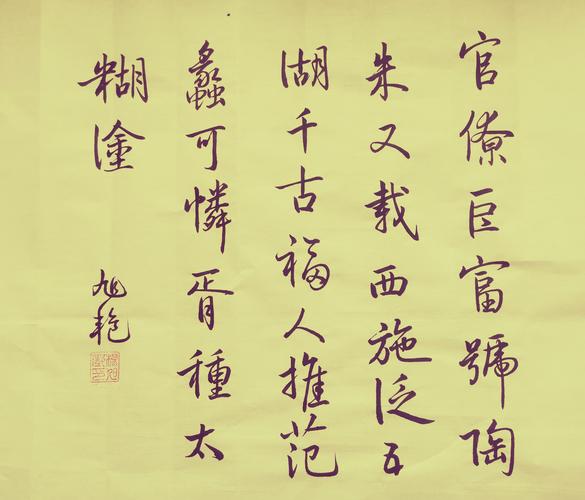 官僚巨富號陶
朱又載西施泛五
湖千古福人推范
蠡可憐胥種太
糊塗
旭艳